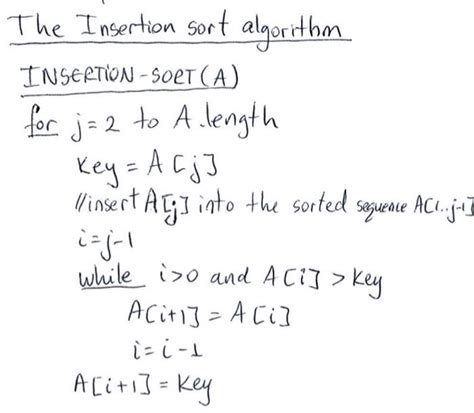 The Insertion sort algorithm
INSERTION-SORT(A)
for j=2 to A.length
Key = A[j]
//insert A[j] into the sorted sequence A[1..j-1]
i=j-1
while i>0 and A[i] > Key
A[i+1] = A[i]
i = i-1
A[i+1] = Key